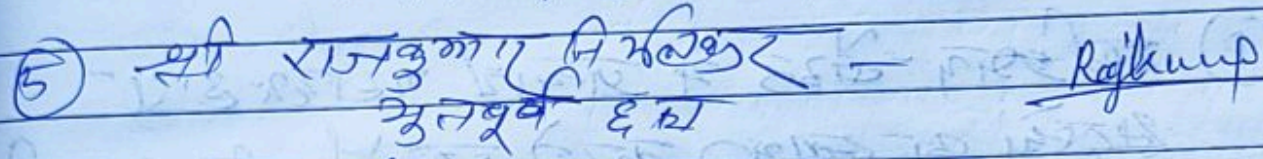 ⑤ श्री राजकुमार निर्मलकर - Rajkump
भुतपूर्व छात्र